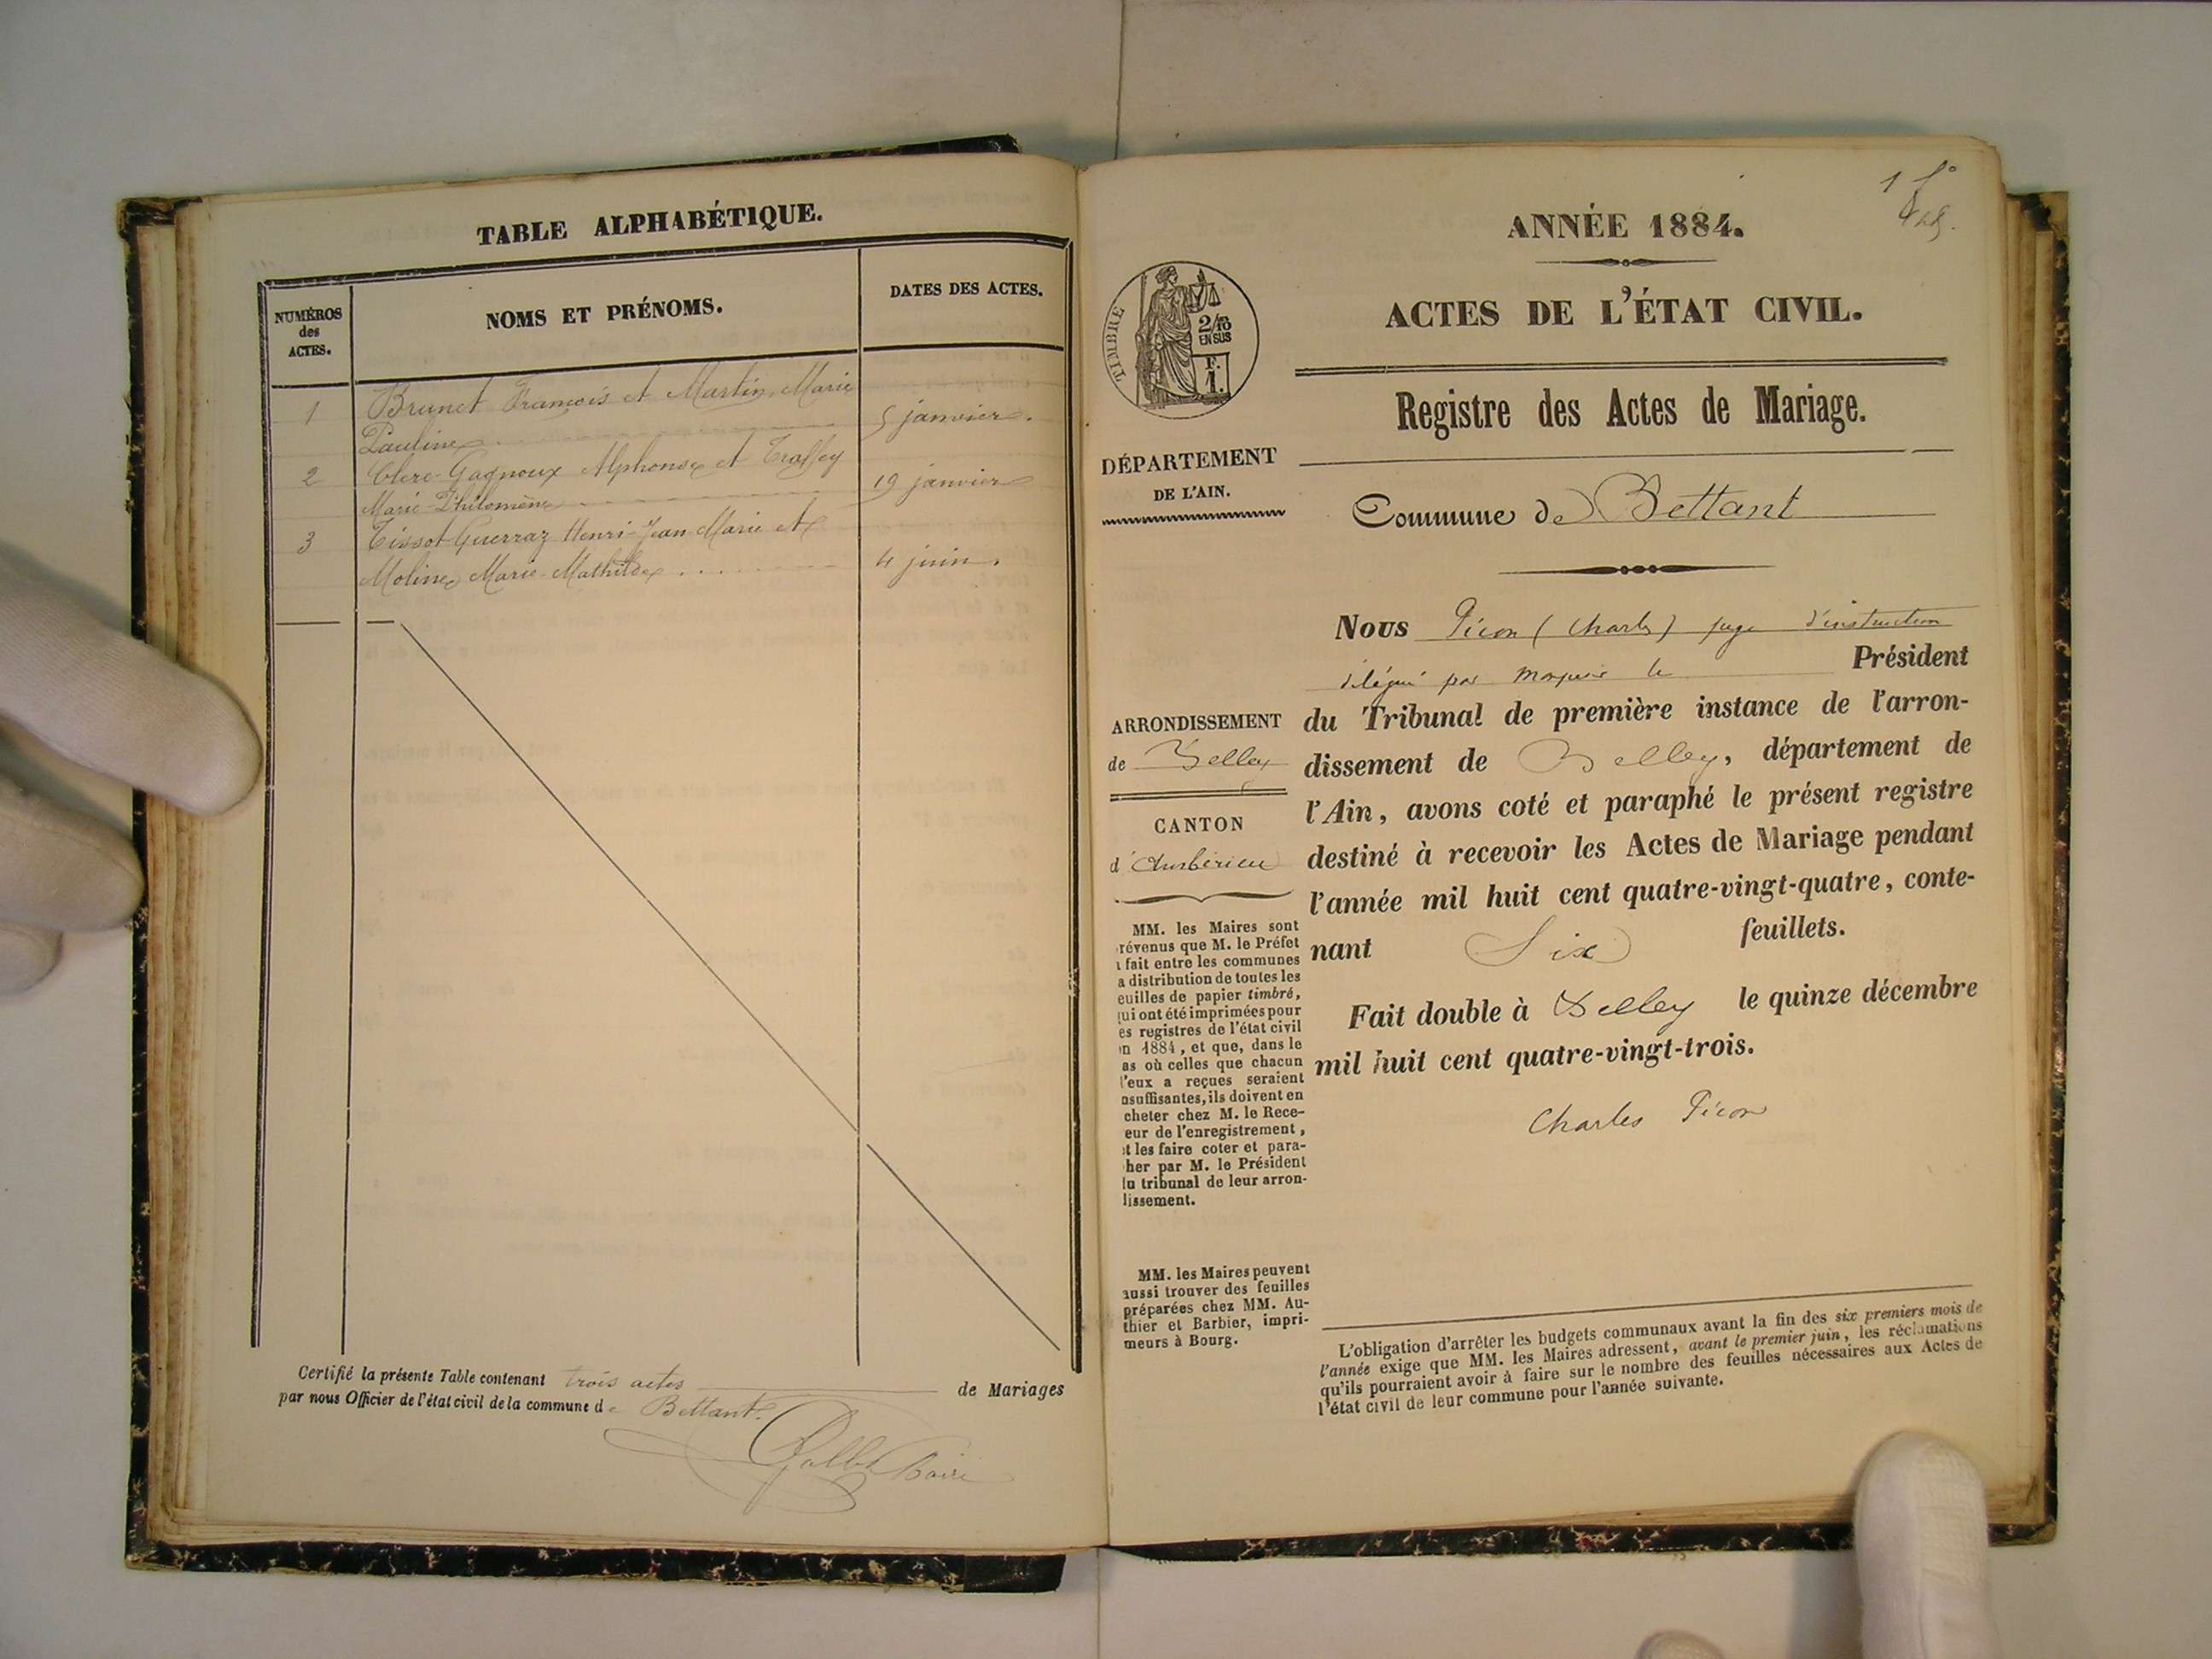 TABLE ALPHABÉTIQUE.
NUMÉROS
des
ACTES.
NOMS ET PRÉNOMS.
DATES DES ACTES.
1 Brunet François et Martin, Marie
Pauline 5 janvier.
2 Clerc-Gagnoux Alphonse et
Marie-Philomène 19 janvier
3 Tissot-Guerraz Henri-Jean-Marie et
Moline, Marie-Mathilde 4 juin.
Certifié la présente Table contenant trois actes de Mariages
par nous Officier de l'état civil de la commune de Bettant.
1 f°
ANNÉE 1884.
ACTES DE L'ÉTAT CIVIL.
TIMBRE
2/10
EN SUS
F.
1.
Registre des Actes de Mariage.
DÉPARTEMENT
DE L'AIN.
Commune de Bettant
Nous Picon (Charles) juge d'instruction
délégué par le Président
du Tribunal de première instance de l'arron-
dissement de Belley, département de
l'Ain, avons coté et paraphé le présent registre
destiné à recevoir les Actes de Mariage pendant
l'année mil huit cent quatre-vingt-quatre, conte-
nant Six feuillets.
Fait double à Belley le quinze décembre
mil huit cent quatre-vingt-trois.
Charles Picon
ARRONDISSEMENT
de Belley
CANTON
d'Ambérieu
MM. les Maires sont
révenus que M. le Préfet
a fait entre les communes
a distribution de toutes les
euilles de papier timbré,
qui ont été imprimées pour
es registres de l'état civil
n 1884, et que, dans le
as où celles que chacun
l'eux a reçues seraient
nsuffisantes, ils doivent en
cheter chez M. le Rece-
eur de l'enregistrement,
t les faire coter et para-
her par M. le Président
du tribunal de leur arron-
lissement.
MM. les Maires peuvent
aussi trouver des feuilles
préparées chez MM. Au-
thier et Barbier, impri-
meurs à Bourg.
L'obligation d'arrêter les budgets communaux avant la fin des six premiers mois de
l'année exige que MM. les Maires adressent, avant le premier juin, les réclamations
qu'ils pourraient avoir à faire sur le nombre des feuilles nécessaires aux Actes de
l'état civil de leur commune pour l'année suivante.